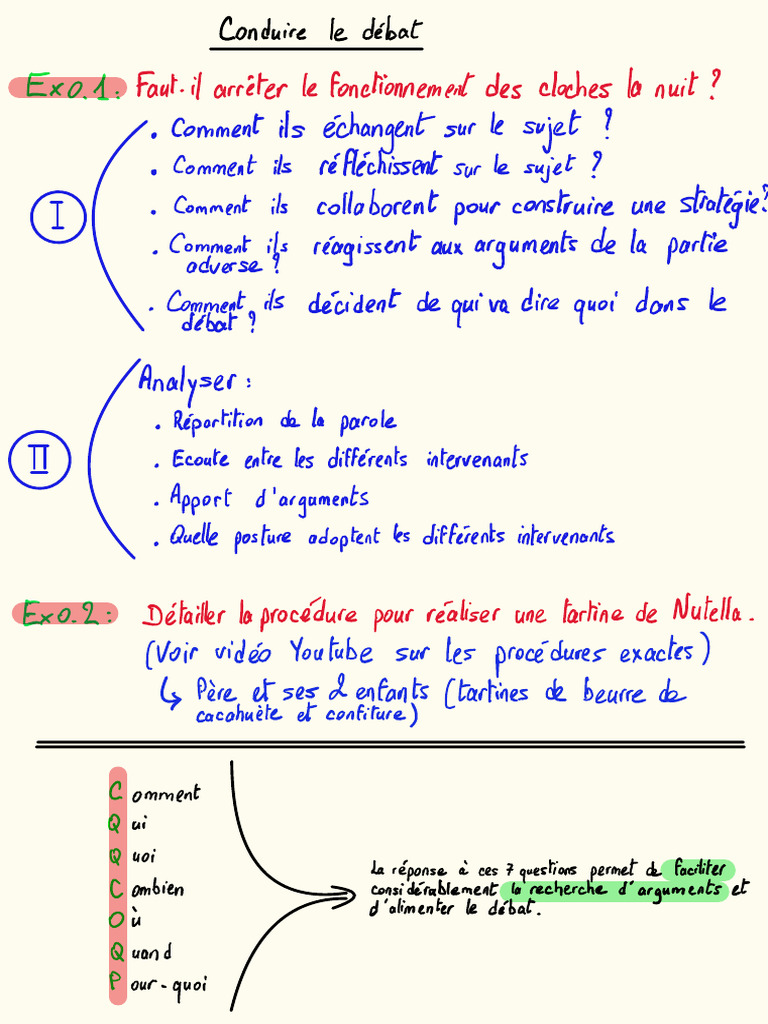 Conduire le débat
Exo.1: Faut-il arrêter le fonctionnement des cloches la nuit ?
I
. Comment ils échangent sur le sujet ?
. Comment ils réfléchissent sur le sujet ?
. Comment ils collaborent pour construire une stratégie?
. Comment ils réagissent aux arguments de la partie
adverse ?
. Comment ils décident de qui va dire quoi dans le
débat ?
II
Analyser :
. Répartition de la parole
. Ecoute entre les différents intervenants
. Apport d'arguments
. Quelle posture adoptent les différents intervenants
Exo.2: Détailler la procédure pour réaliser une tartine de Nutella.
(Voir vidéo Youtube sur les procédures exactes)
↳ Père et ses 2 enfants (tartines de beurre de
cacahuète et confiture)
Comment
Qui
Quoi
Combien
Où
Quand
Pour-quoi
La réponse à ces 7 questions permet de faciliter
considérablement la recherche d'arguments et
d'alimenter le débat.